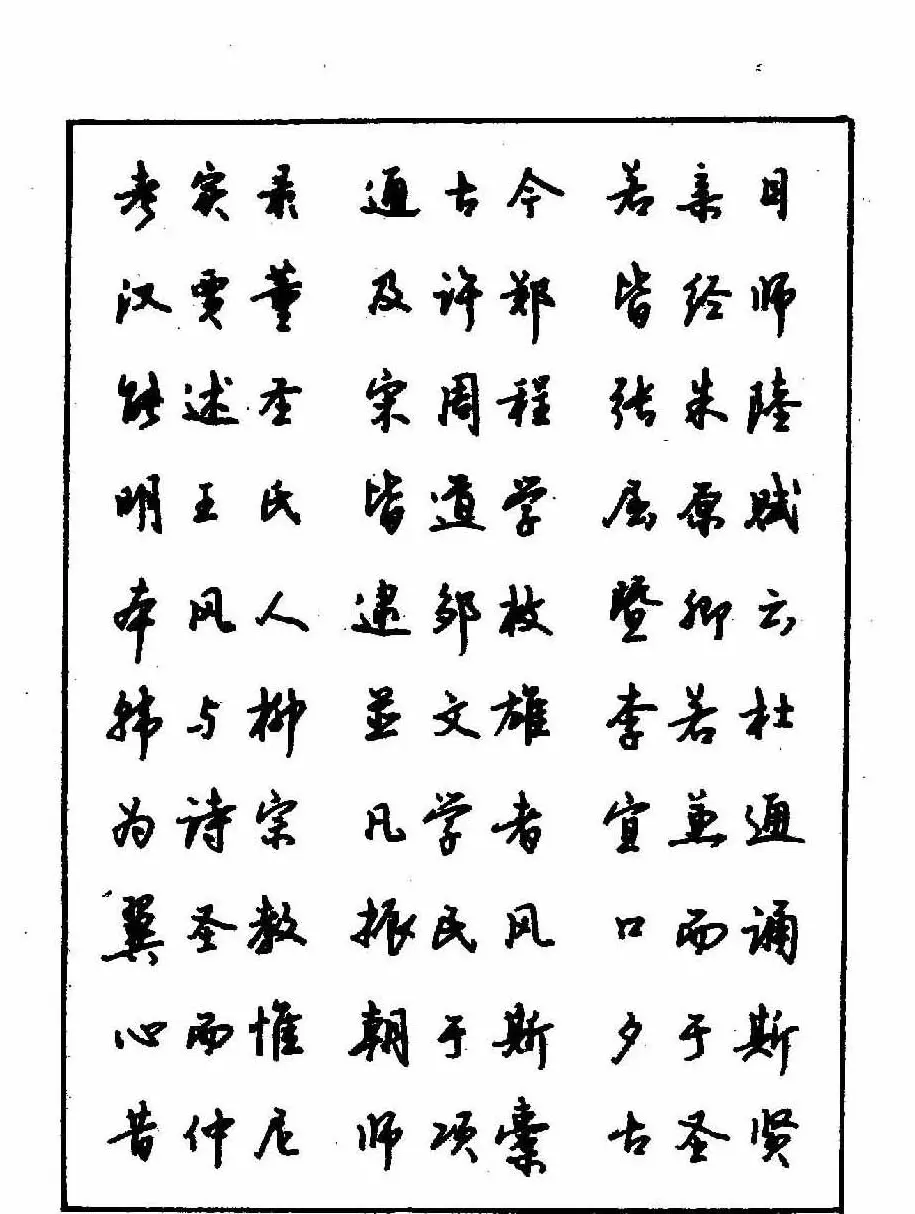 考实录 通古今 若亲目
汉贾董 及许郑 皆经师
能述圣 宋周程 张朱陆
明王氏 皆道学 屈原赋
本风人 逮邹枚 暨卿云
韩与柳 並文雄 李若杜
为诗宗 凡学者 宜兼通
翼圣教 振民风 口而诵
心而惟 朝于斯 夕于斯
昔仲尼 师项橐 古圣贤